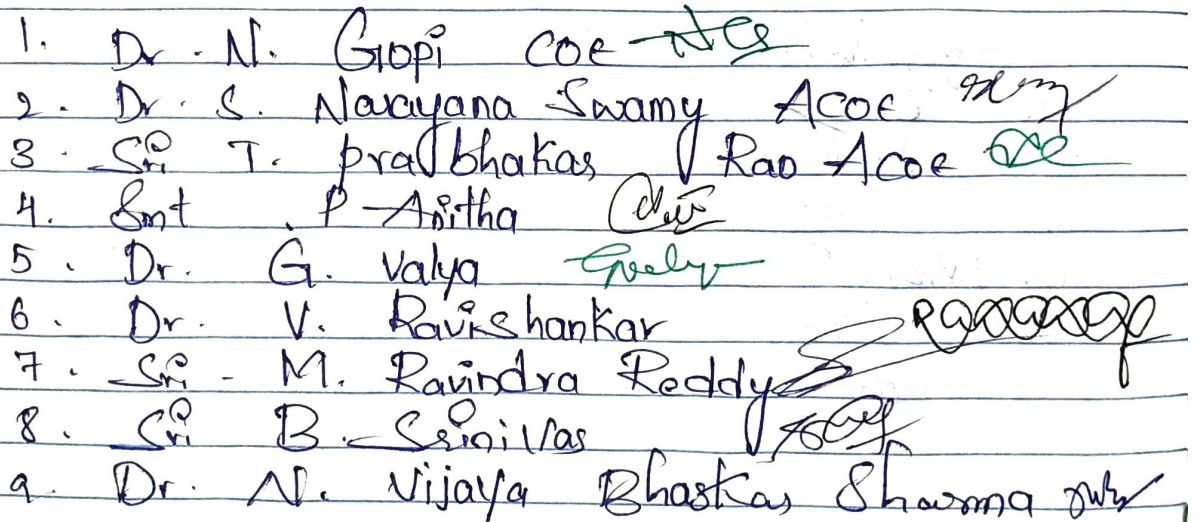 1. Dr. N. Gopi COE
2. Dr. S. Narayana Swamy ACOE
3. Sri T. prabhakar Rao ACOE
4. Smt P. Anitha
5. Dr. G. Valya
6. Dr. V. Ravishankar
7. Sri - M. Ravindra Reddy
8. Sri B. Srinivas
9. Dr. N. Vijaya Bhaskar Sharma